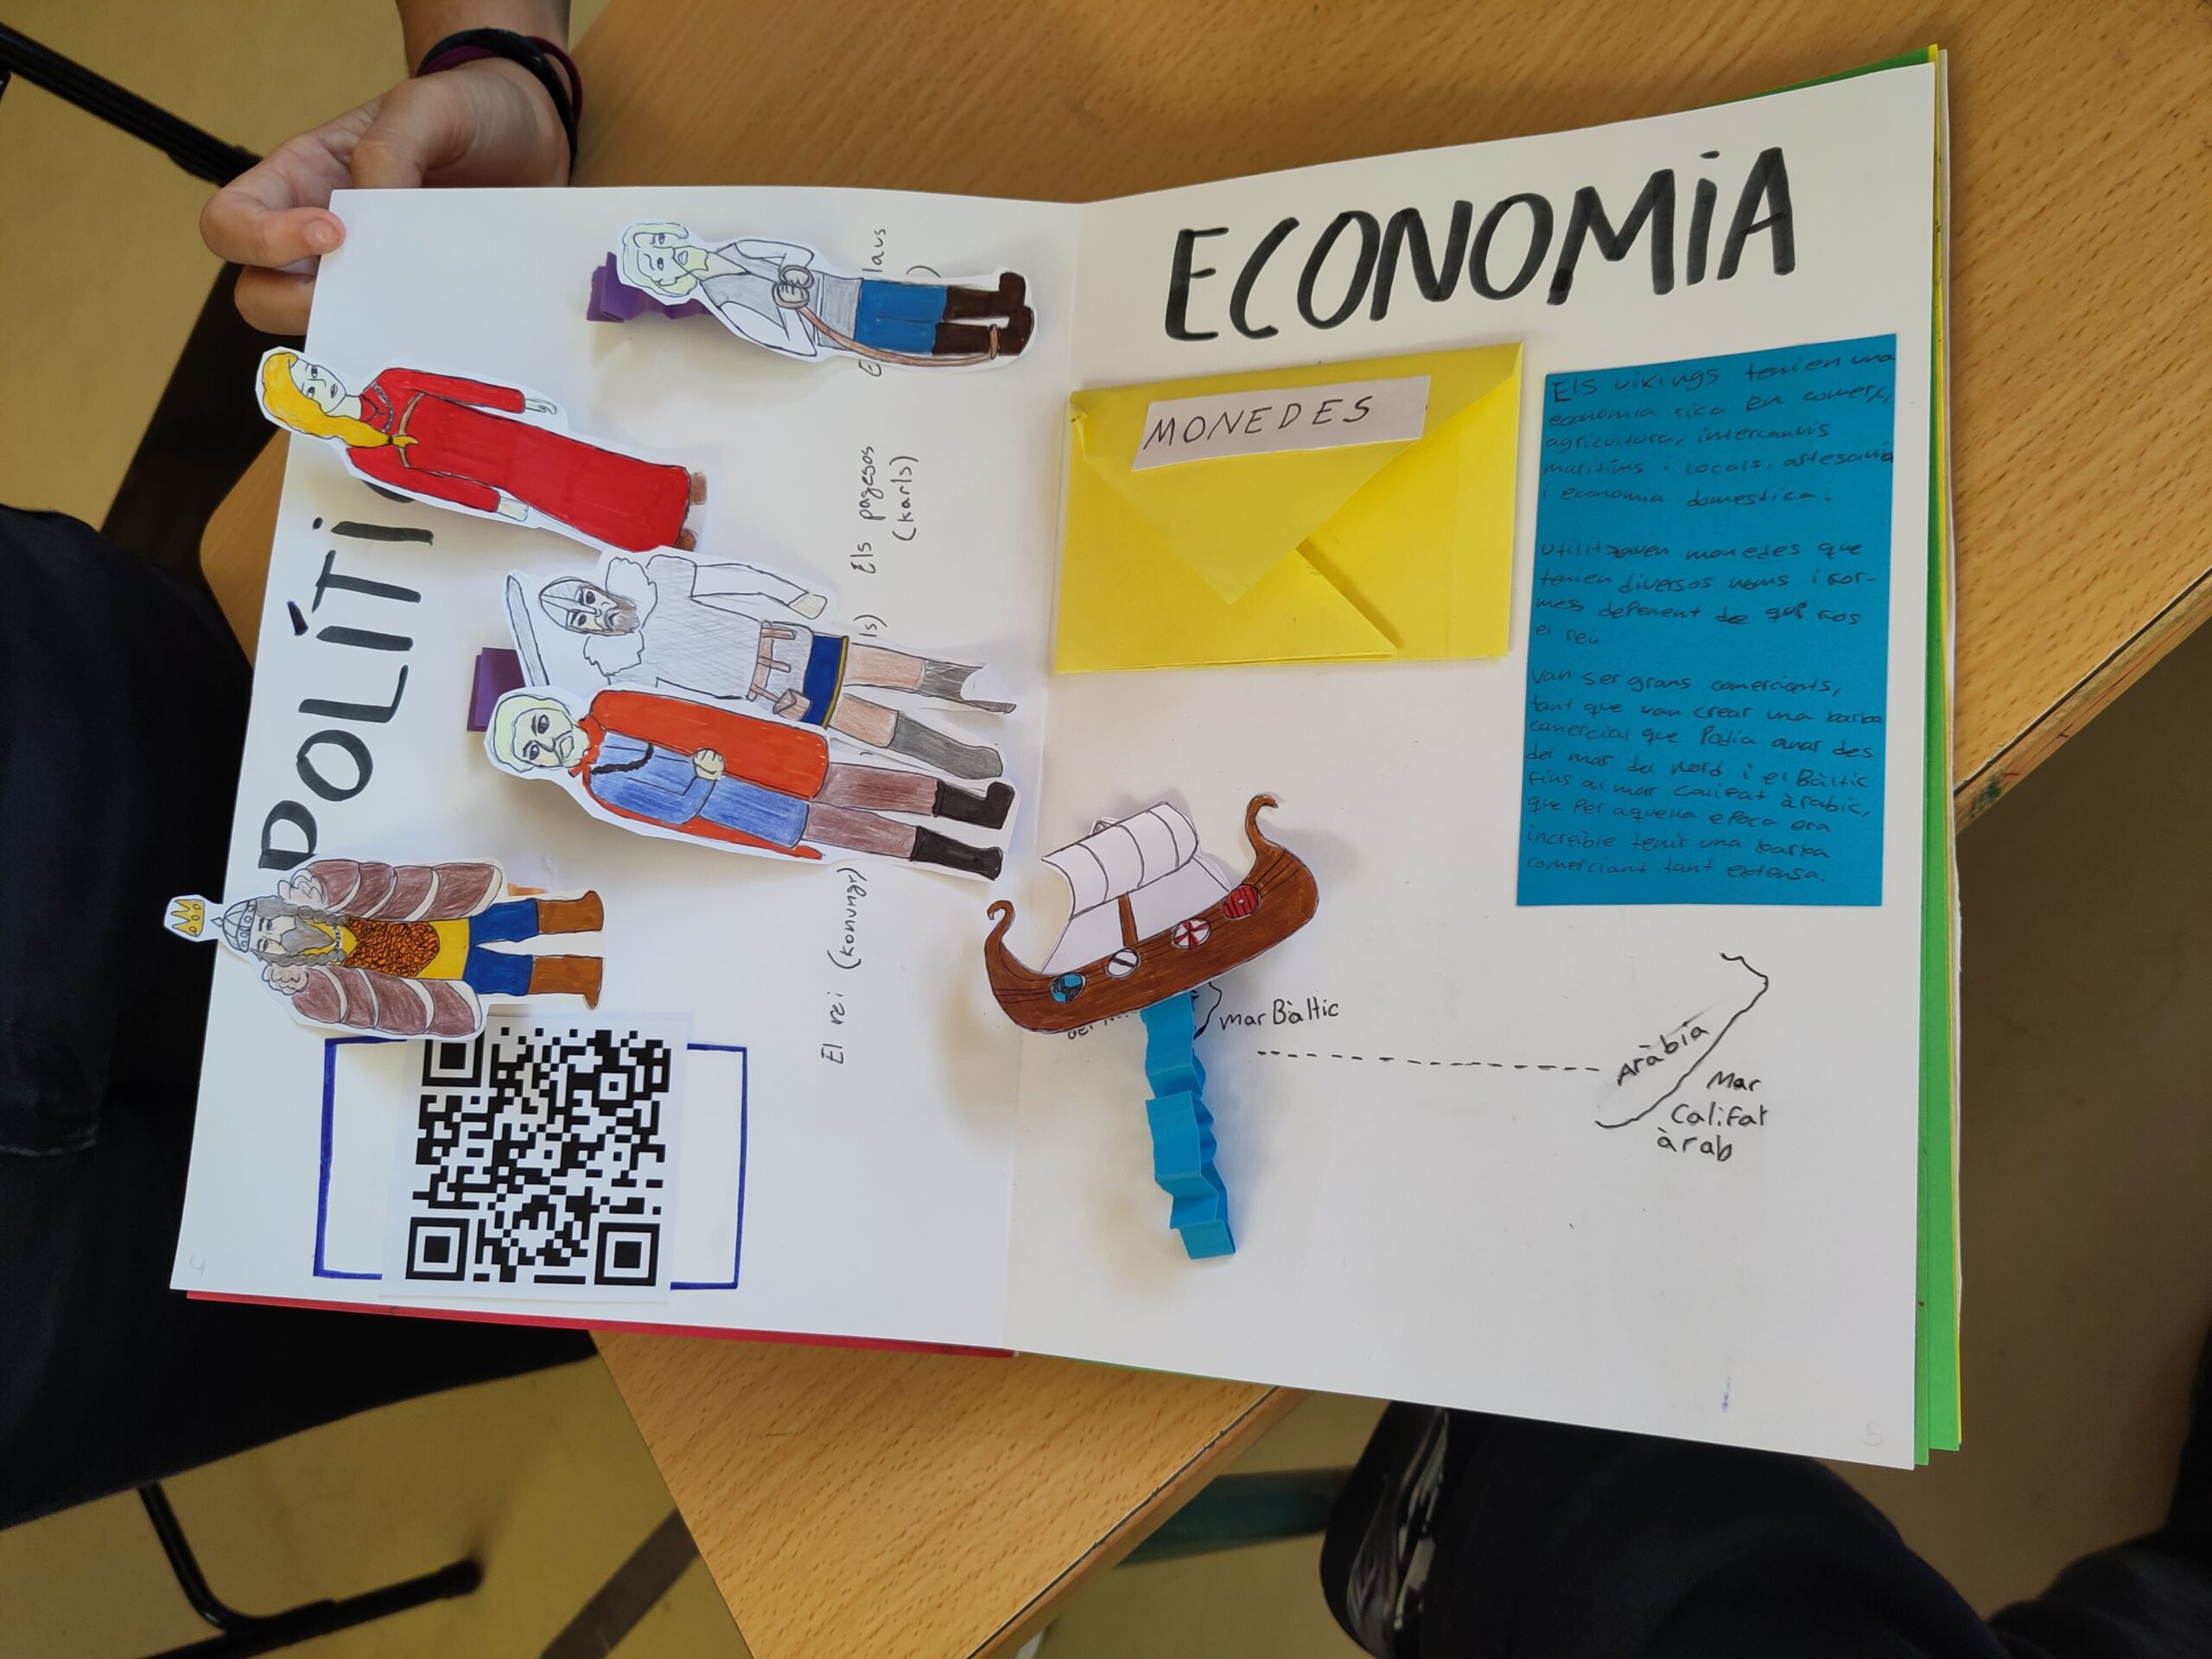 POLÍTI
laus
Els pagesos
(karls)
ls)
El rei (konungr)
4
ECONOMIA
MONEDES
Els vikings tenien una
economia rica en comerç,
agricultura, intercanvis
marítims i locals, artesania
i economia domestica.
Utilitzaven monedes que
tenien diversos noms i for-
mes depenent de qui fos
el rei
Van ser grans comerciants,
tant que van crear una xarxa
comercial que Podia anar des
del mar del Nord i el Bàltic
fins al mar Califat àrabic,
que Per aquella epoca era
increible tenir una xarxa
comerciant tant extensa.
mar Bàltic
Aràbia
Mar
Califat
àrab
5